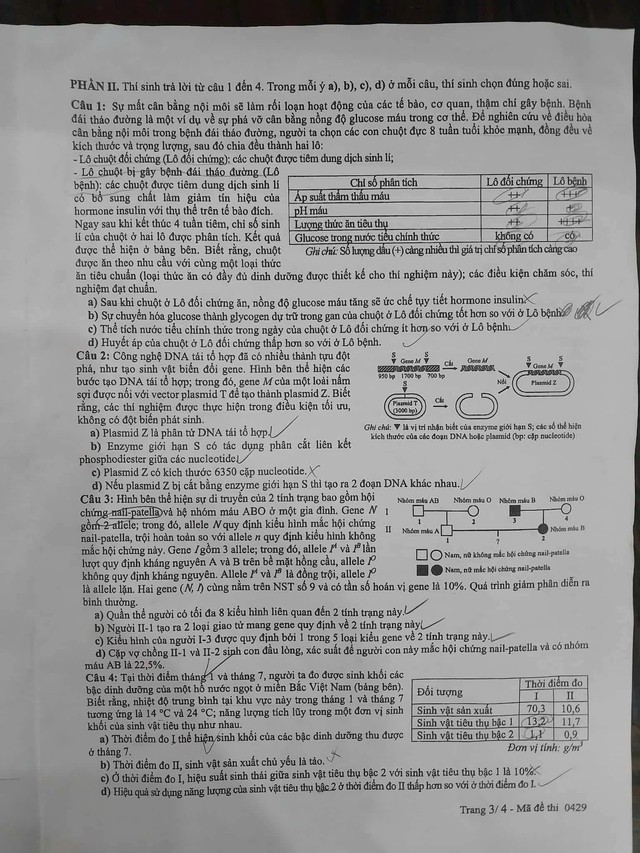 PHẦN II. Thí sinh trả lời từ câu 1 đến 4. Trong mỗi ý a), b), c), d) ở mỗi câu, thí sinh chọn đúng hoặc sai.
Câu 1: Sự mất cân bằng nội môi sẽ làm rối loạn hoạt động của các tế bào, cơ quan, thậm chí gây bệnh. Bệnh
đái tháo đường là một ví dụ về sự phá vỡ cân bằng nồng độ glucose máu trong cơ thể. Để nghiên cứu về điều hòa
cân bằng nội môi trong bệnh đái tháo đường, người ta chọn các con chuột đực 8 tuần tuổi khỏe mạnh, đồng đều về
kích thước và trọng lượng, sau đó chia đều thành hai lô:
- Lô chuột đối chứng (Lô đối chứng): các chuột được tiêm dung dịch sinh lí;
- Lô chuột bị gây bệnh đái tháo đường (Lô
bệnh): các chuột được tiêm dung dịch sinh lí
có bổ sung chất làm giảm tín hiệu của
hormone insulin với thụ thể trên tế bào đích.
Ngay sau khi kết thúc 4 tuần tiêm, chỉ số sinh
lí của chuột ở hai lô được phân tích. Kết quả
được thể hiện ở bảng bên. Biết rằng, chuột
được ăn theo nhu cầu với cùng một loại thức
Chỉ số phân tích Lô đối chứng Lô bệnh
Áp suất thẩm thấu máu ++ +++
pH máu ++ +
Lượng thức ăn tiêu thụ ++
Glucose trong nước tiểu chính thức không có có
Ghi chú: Số lượng dấu (+) càng nhiều thì giá trị chỉ số phân tích càng cao
ăn tiêu chuẩn (loại thức ăn có đầy đủ dinh dưỡng được thiết kế cho thí nghiệm này); các điều kiện chăm sóc, thí
nghiệm đạt chuẩn.
a) Sau khi chuột ở Lô đối chứng ăn, nồng độ glucose máu tăng sẽ ức chế tụy tiết hormone insulin.
b) Sự chuyển hóa glucose thành glycogen dự trữ trong gan của chuột ở Lô đối chứng tốt hơn so với ở Lô bệnh.
c) Thể tích nước tiểu chính thức trong ngày của chuột ở Lô đối chứng ít hơn so với ở Lô bệnh.
d) Huyết áp của chuột ở Lô đối chứng thấp hơn so với ở Lô bệnh.
Câu 2: Công nghệ DNA tái tổ hợp đã có nhiều thành tựu đột
phá, như tạo sinh vật biến đổi gene. Hình bên thể hiện các
bước tạo DNA tái tổ hợp; trong đó, gene M của một loài nấm
sợi được nối với vector plasmid T để tạo thành plasmid Z. Biết
rằng, các thí nghiệm được thực hiện trong điều kiện tối ưu,
không có đột biến phát sinh.
a) Plasmid Z là phân tử DNA tái tổ hợp.
b) Enzyme giới hạn S có tác dụng phân cắt liên kết
phosphodiester giữa các nucleotide.
c) Plasmid Z có kích thước 6350 cặp nucleotide.
d) Nếu plasmid Z bị cắt bằng enzyme giới hạn S thì tạo ra 2 đoạn DNA khác nhau.
S Gene M S
950 bp 1700 bp 700 bp
Cắt
Gene M
S
Plasmid T
(3000 bp)
Cắt
Nối
S S
Gene M
Plasmid Z
Ghi chú: ▼ là vị trí nhận biết của enzyme giới hạn S; các số thể hiện
kích thước của các đoạn DNA hoặc plasmid (bp: cặp nucleotide)
Câu 3: Hình bên thể hiện sự di truyền của 2 tính trạng bao gồm hội
chứng nail-patella và hệ nhóm máu ABO ở một gia đình. Gene N
gồm 2 allele; trong đó, allele N quy định kiểu hình mắc hội chứng
nail-patella, trội hoàn toàn so với allele n quy định kiểu hình không
mắc hội chứng này. Gene I gồm 3 allele; trong đó, allele Iᴬ và Iᴮ lần
lượt quy định kháng nguyên A và B trên bề mặt hồng cầu, allele Iᴼ
không quy định kháng nguyên. Allele Iᴬ và Iᴮ là đồng trội, allele Iᴼ
Nhóm máu AB Nhóm máu O Nhóm máu B Nhóm máu O
I 1 2 3 4
II Nhóm máu A Nhóm máu B
1 ? 2
Nam, nữ không mắc hội chứng nail-patella
Nam, nữ mắc hội chứng nail-patella
là allele lặn. Hai gene (N, I) cùng nằm trên NST số 9 và có tần số hoán vị gene là 10%. Quá trình giảm phân diễn ra
bình thường.
a) Quần thể người có tối đa 8 kiểu hình liên quan đến 2 tính trạng này.
b) Người II-1 tạo ra 2 loại giao tử mang gene quy định về 2 tính trạng này.
c) Kiểu hình của người I-3 được quy định bởi 1 trong 5 loại kiểu gene về 2 tính trạng này.
d) Cặp vợ chồng II-1 và II-2 sinh con đầu lòng, xác suất để người con này mắc hội chứng nail-patella và có nhóm
máu AB là 22,5%.
Câu 4: Tại thời điểm tháng 1 và tháng 7, người ta đo được sinh khối các
bậc dinh dưỡng của một hồ nước ngọt ở miền Bắc Việt Nam (bảng bên).
Biết rằng, nhiệt độ trung bình tại khu vực này trong tháng 1 và tháng 7
tương ứng là 14 °C và 24 °C; năng lượng tích lũy trong một đơn vị sinh
khối của sinh vật tiêu thụ như nhau.
a) Thời điểm đo I thể hiện sinh khối của các bậc dinh dưỡng thu được
ở tháng 7.
Đối tượng Thời điểm đo
I II
Sinh vật sản xuất 70,3 10,6
Sinh vật tiêu thụ bậc 1 13,2 11,7
Sinh vật tiêu thụ bậc 2 1,1 0,9
Đơn vị tính: g/m³
b) Thời điểm đo II, sinh vật sản xuất chủ yếu là tảo.
c) Ở thời điểm đo I, hiệu suất sinh thái giữa sinh vật tiêu thụ bậc 2 với sinh vật tiêu thụ bậc 1 là 10%.
d) Hiệu quả sử dụng năng lượng của sinh vật tiêu thụ bậc 2 ở thời điểm đo II thấp hơn so với ở thời điểm đo I.
Trang 3/ 4 - Mã đề thi 0429